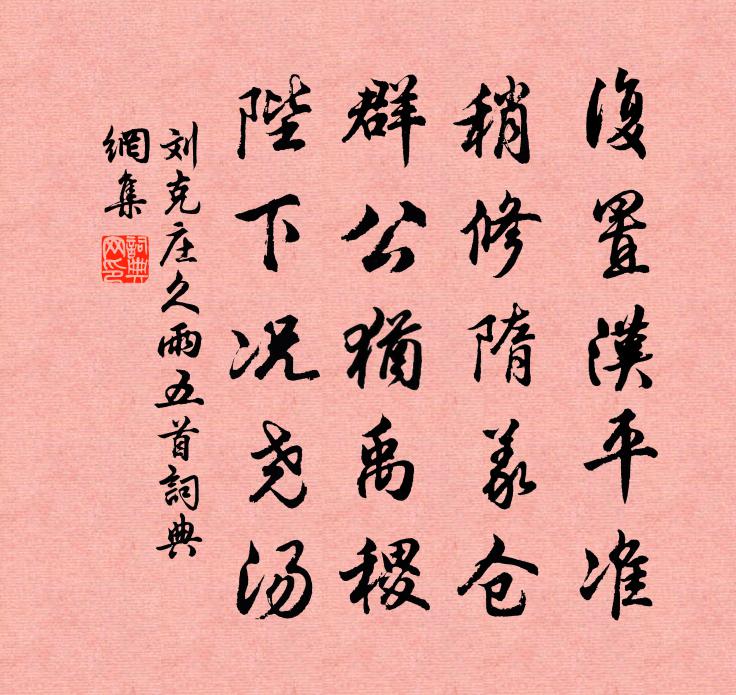 復置漢平准
稍修隋义仓
群公猶禹稷
陛下况尧汤
刘克庄久雨五首詞典
網集
詞典網印